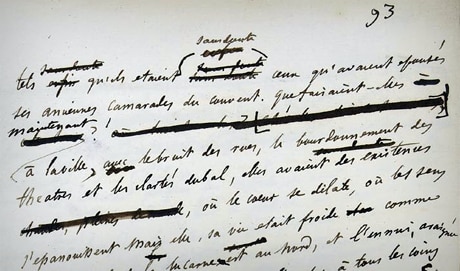 93
sans doute
enfin
tels enfin qu'ils étaient (sans doute ceux qu'avaient épousés
ses anciennes camarades du couvent. Que faisaient-elles
maintenant?
à la ville, avec le bruit des rues, le bourdonnement des
théâtres et les clartés du bal, elles avaient des existences
où le coeur se dilate, où les sens
s'épanouissent mais elle, sa vie était froide comme
lucarne est au nord, et l'ennui, araignée
à tous les coins